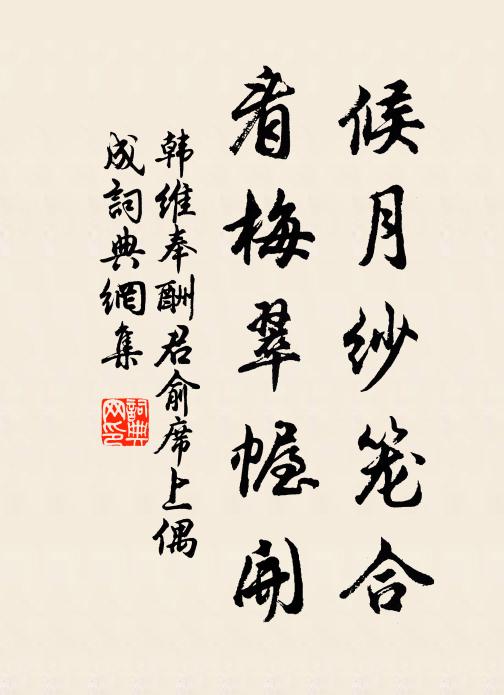 候月纱笼合
看梅翠幄開
韩维奉酬君俞席上偶
成詞典網集
詞典
网印